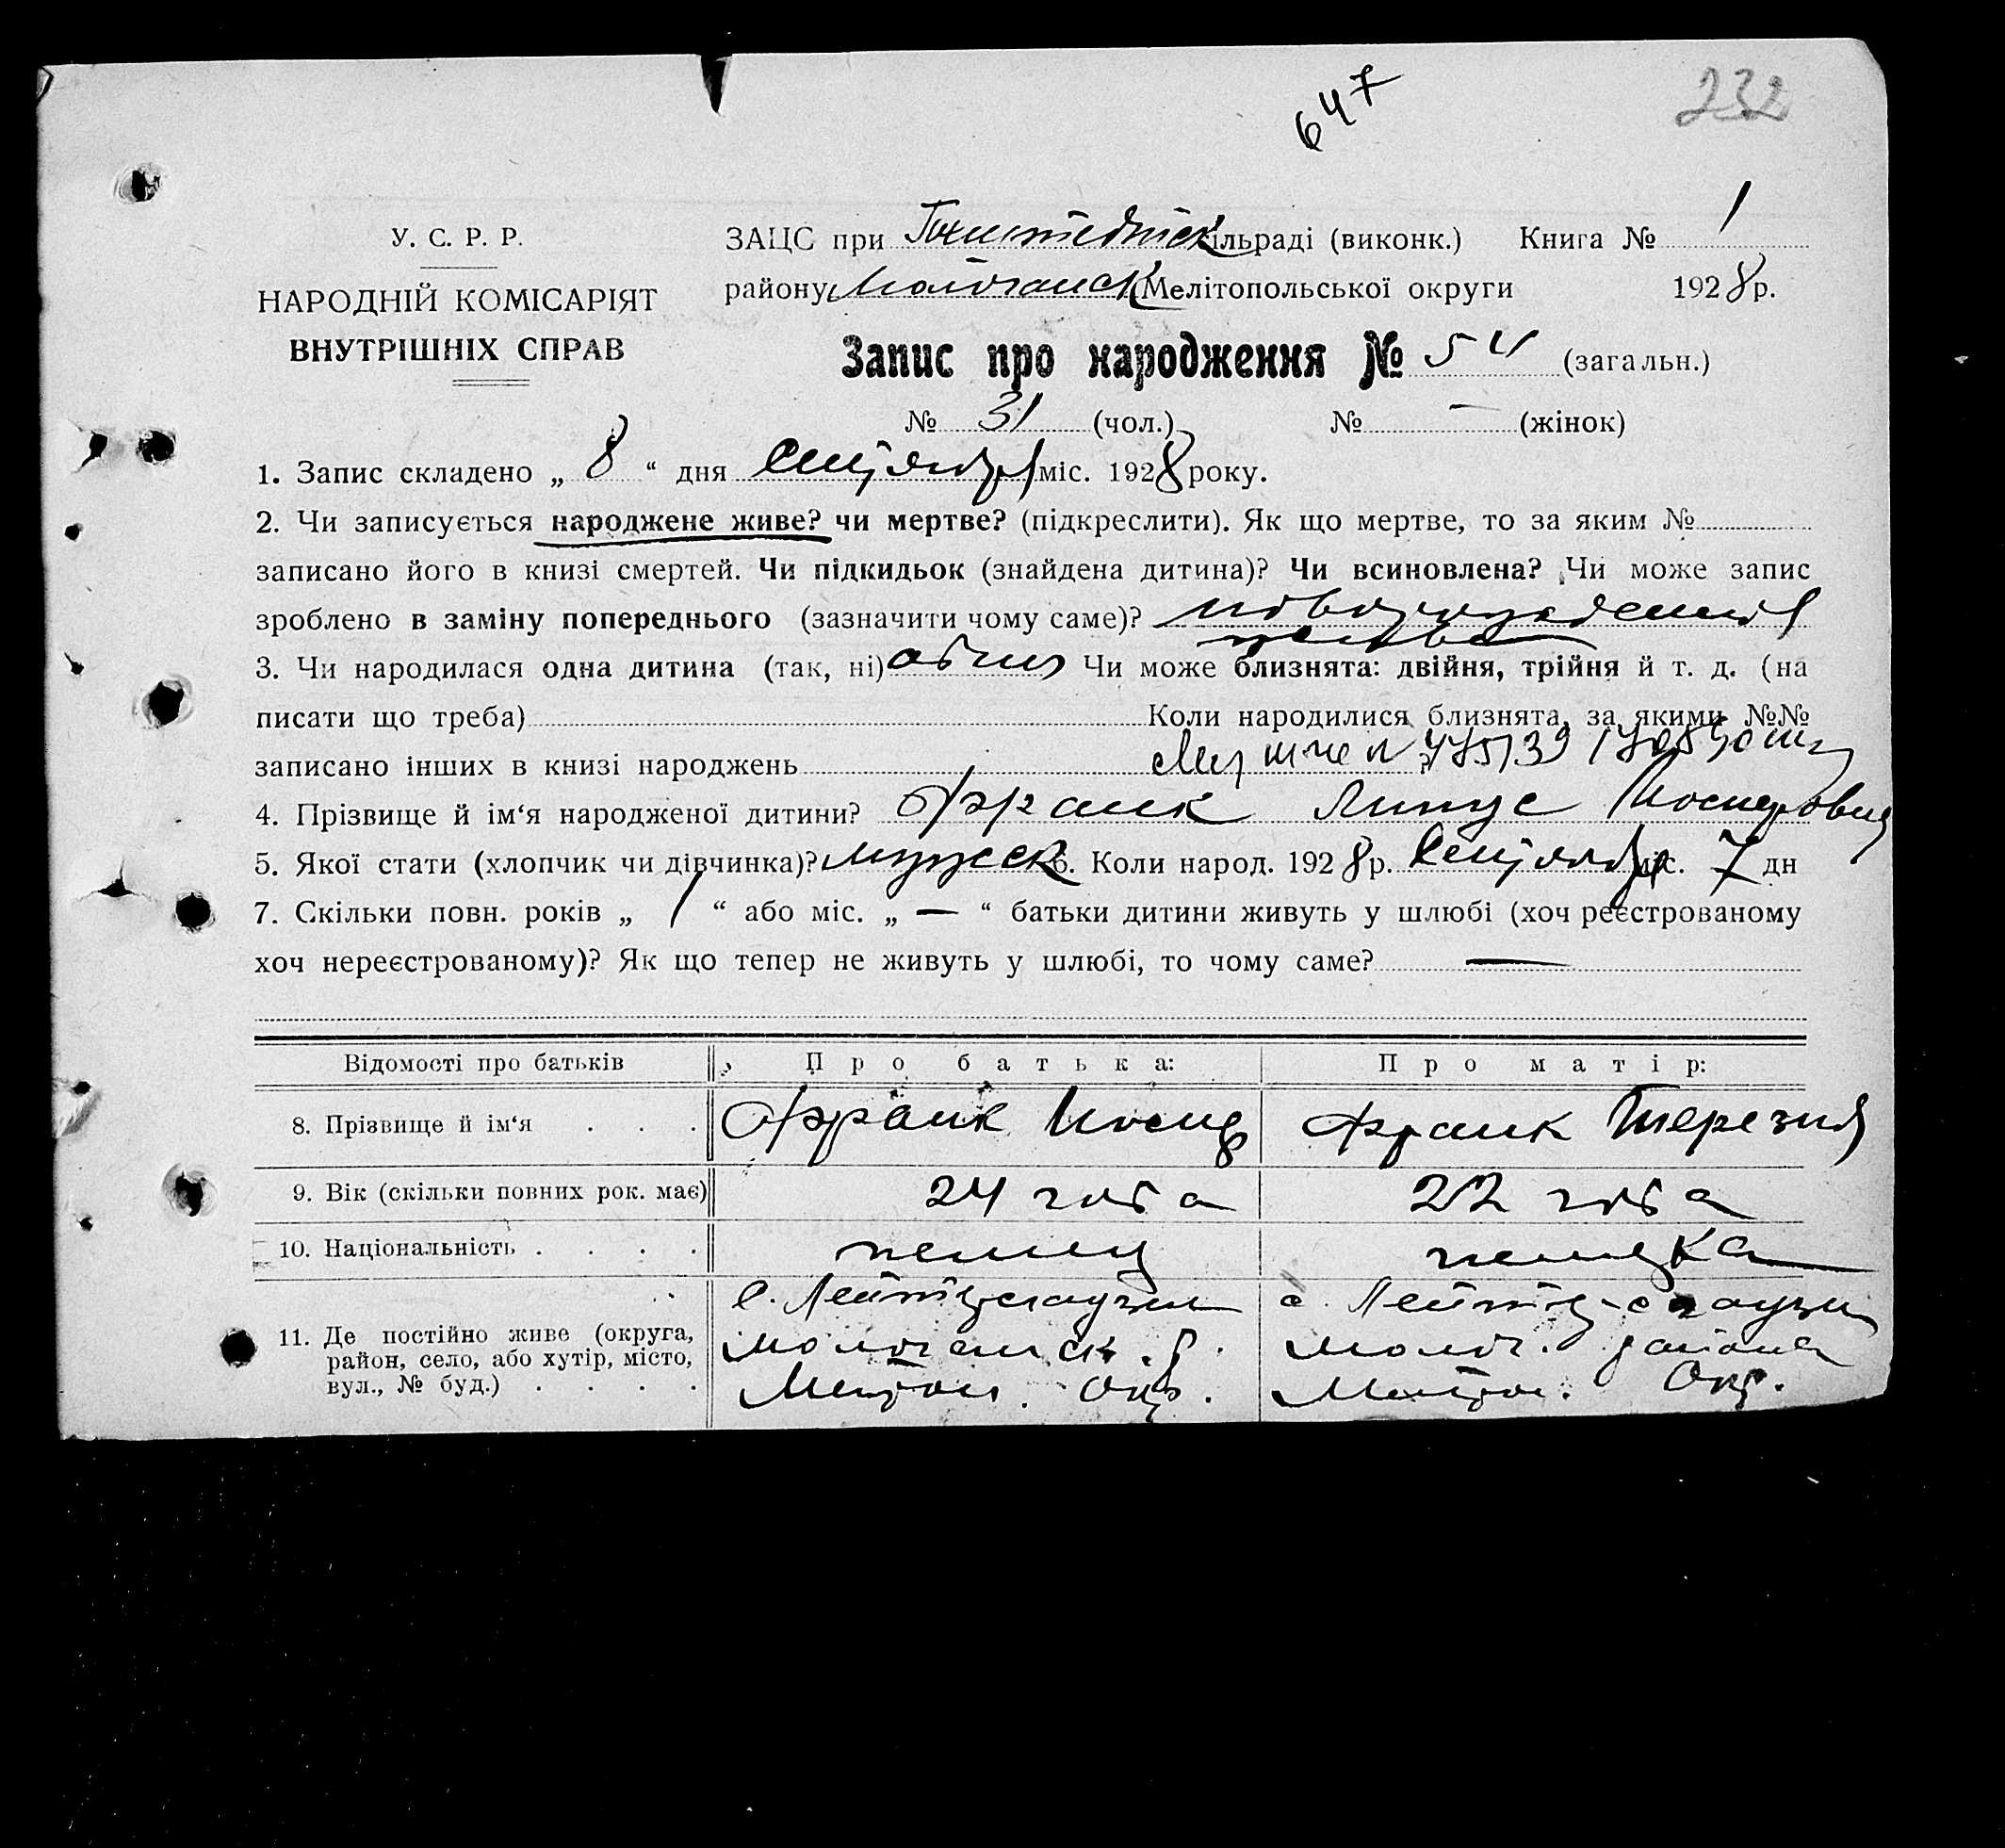 647
232
У. С. Р. Р.
НАРОДНІЙ КОМІСАРІЯТ
ВНУТРІШНІХ СПРАВ
ЗАЦС при Гохштедтск ільраді (виконк.) Книга № 1
району Молочанск Мелітопольської округи 1928 р.
Запис про народження № 54 (загальн.)
№ 31 (чол.) № — (жінок)
1. Запис складено „ 8 “ дня Сентября міс. 1928 року.
2. Чи записується народжене живе? чи мертве? (підкреслити). Як що мертве, то за яким №
записано його в книзі смертей. Чи підкидьок (знайдена дитина)? Чи всиновлена? Чи може запис
зроблено в заміну попереднього (зазначити чому саме)? новорожденный
3. Чи народилася одна дитина (так, ні) один Чи може близнята: двійня, трійня й т. д. (на
писати що треба) Коли народилися близнята, за якими №№
записано інших в книзі народжень
4. Прізвище й ім‘я народженої дитини? Франк Линус Иосифович
5. Якої стати (хлопчик чи дівчинка)? мужск 6. Коли народ. 1928 р. Сентября міс. 7 дн
7. Скільки повн. років „ 1 “ або міс. „ — “ батьки дитини живуть у шлюбі (хоч реєстрованому
хоч нереєстрованому)? Як що тепер не живуть у шлюбі, то чому саме? —
Відомості про батьків Про батька: Про матір:
8. Прізвище й ім‘я . . . Франк Иосиф Франк Терезия
9. Вік (скільки повних рок. має) 24 года 22 года
10. Національність . . . . немец немецка
11. Де постійно живе (округа, район, село, або хутір, місто, вул., № буд.) . . . .
с. Лейтерсгаузен
Молочанск. р.
Мелитоп. Окр.
с. Лейтер-сгаузен
Молоч. района
Мелитоп. Окр.